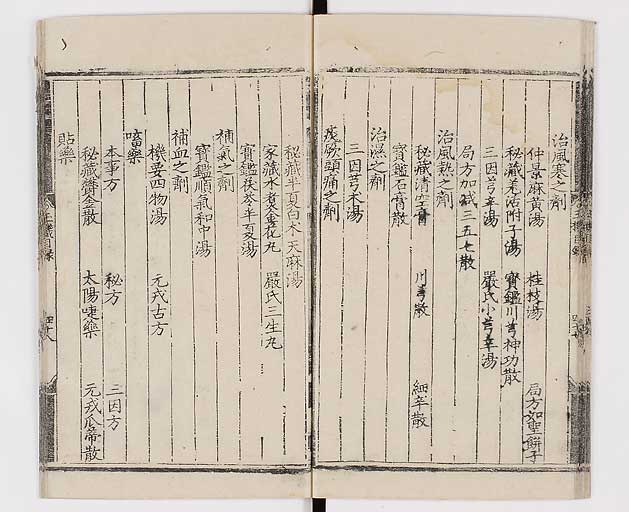 治風寒之劑
仲景麻黃湯 桂枝湯 局方如聖餅子
秘藏羌活附子湯 寳鑑川芎神功散
三因芎辛湯 嚴氏小芎辛湯
局方加減三五七散
治風熱之劑
秘藏清空膏 川芎散 細辛散
寳鑑石膏散
治濕之劑
三因芎朮湯
痰厥頭痛之劑
秘藏半夏白朮天麻湯
家藏水煑金花丸 嚴氏三生丸
寳鑑茯苓半夏湯
補氣之劑
寳鑑順氣和中湯
補血之劑
機要四物湯 元戎古方
㗜藥
本事方 秘方 三因方
秘藏鬱金散 太陽㗜藥 元戎瓜蒂散
貼藥
目録